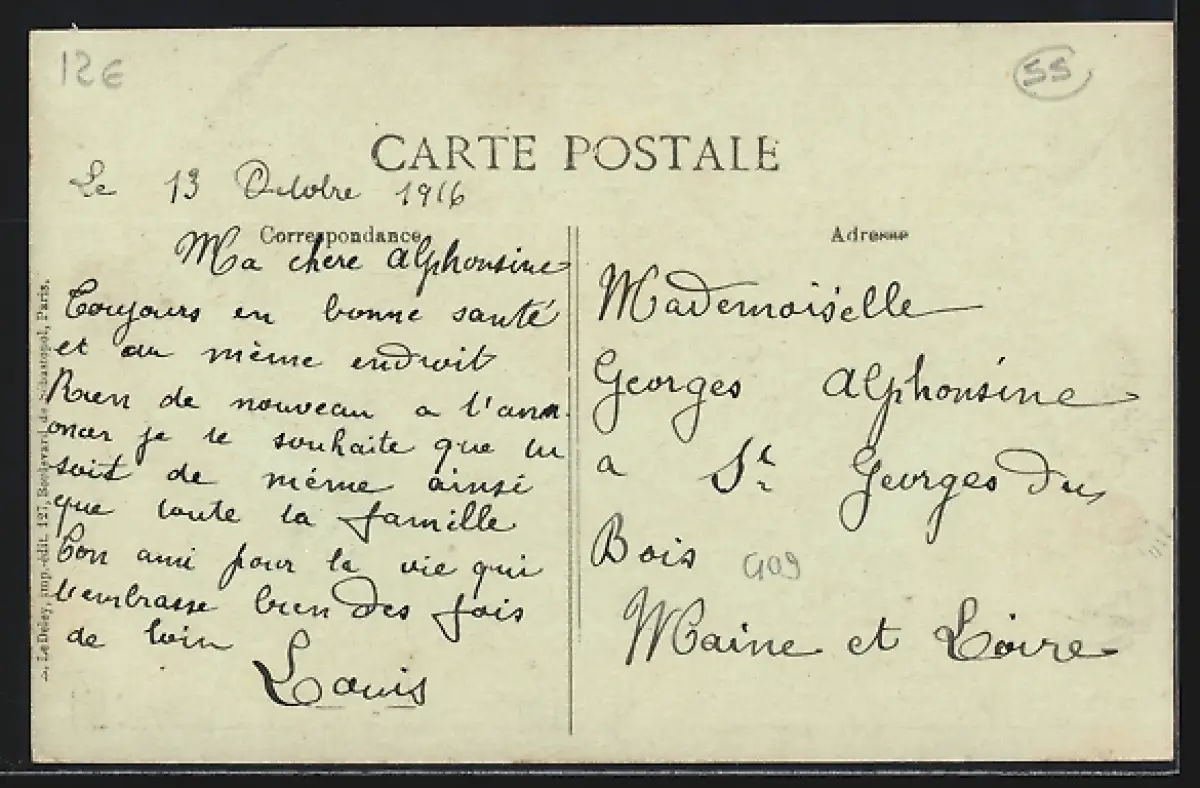 12€
55
CARTE POSTALE
Le 13 Octobre 1916
Correspondance
Adresse
Ma chere Alphonsine
Toujours en bonne santé
et au même endroit
Rien de nouveau a t'ann
oncer je te souhaite que tu
soit de même ainsi
que toute la famille
Ton ami pour la vie qui
t'embrasse bien des fois
de loin
Louis
Mademoiselle
Georges Alphonsine
a St Georges du
Bois
909
Maine et Loire
E. Le Deley, imp.-édit. 127, Boulevard de Sébastopol, Paris.